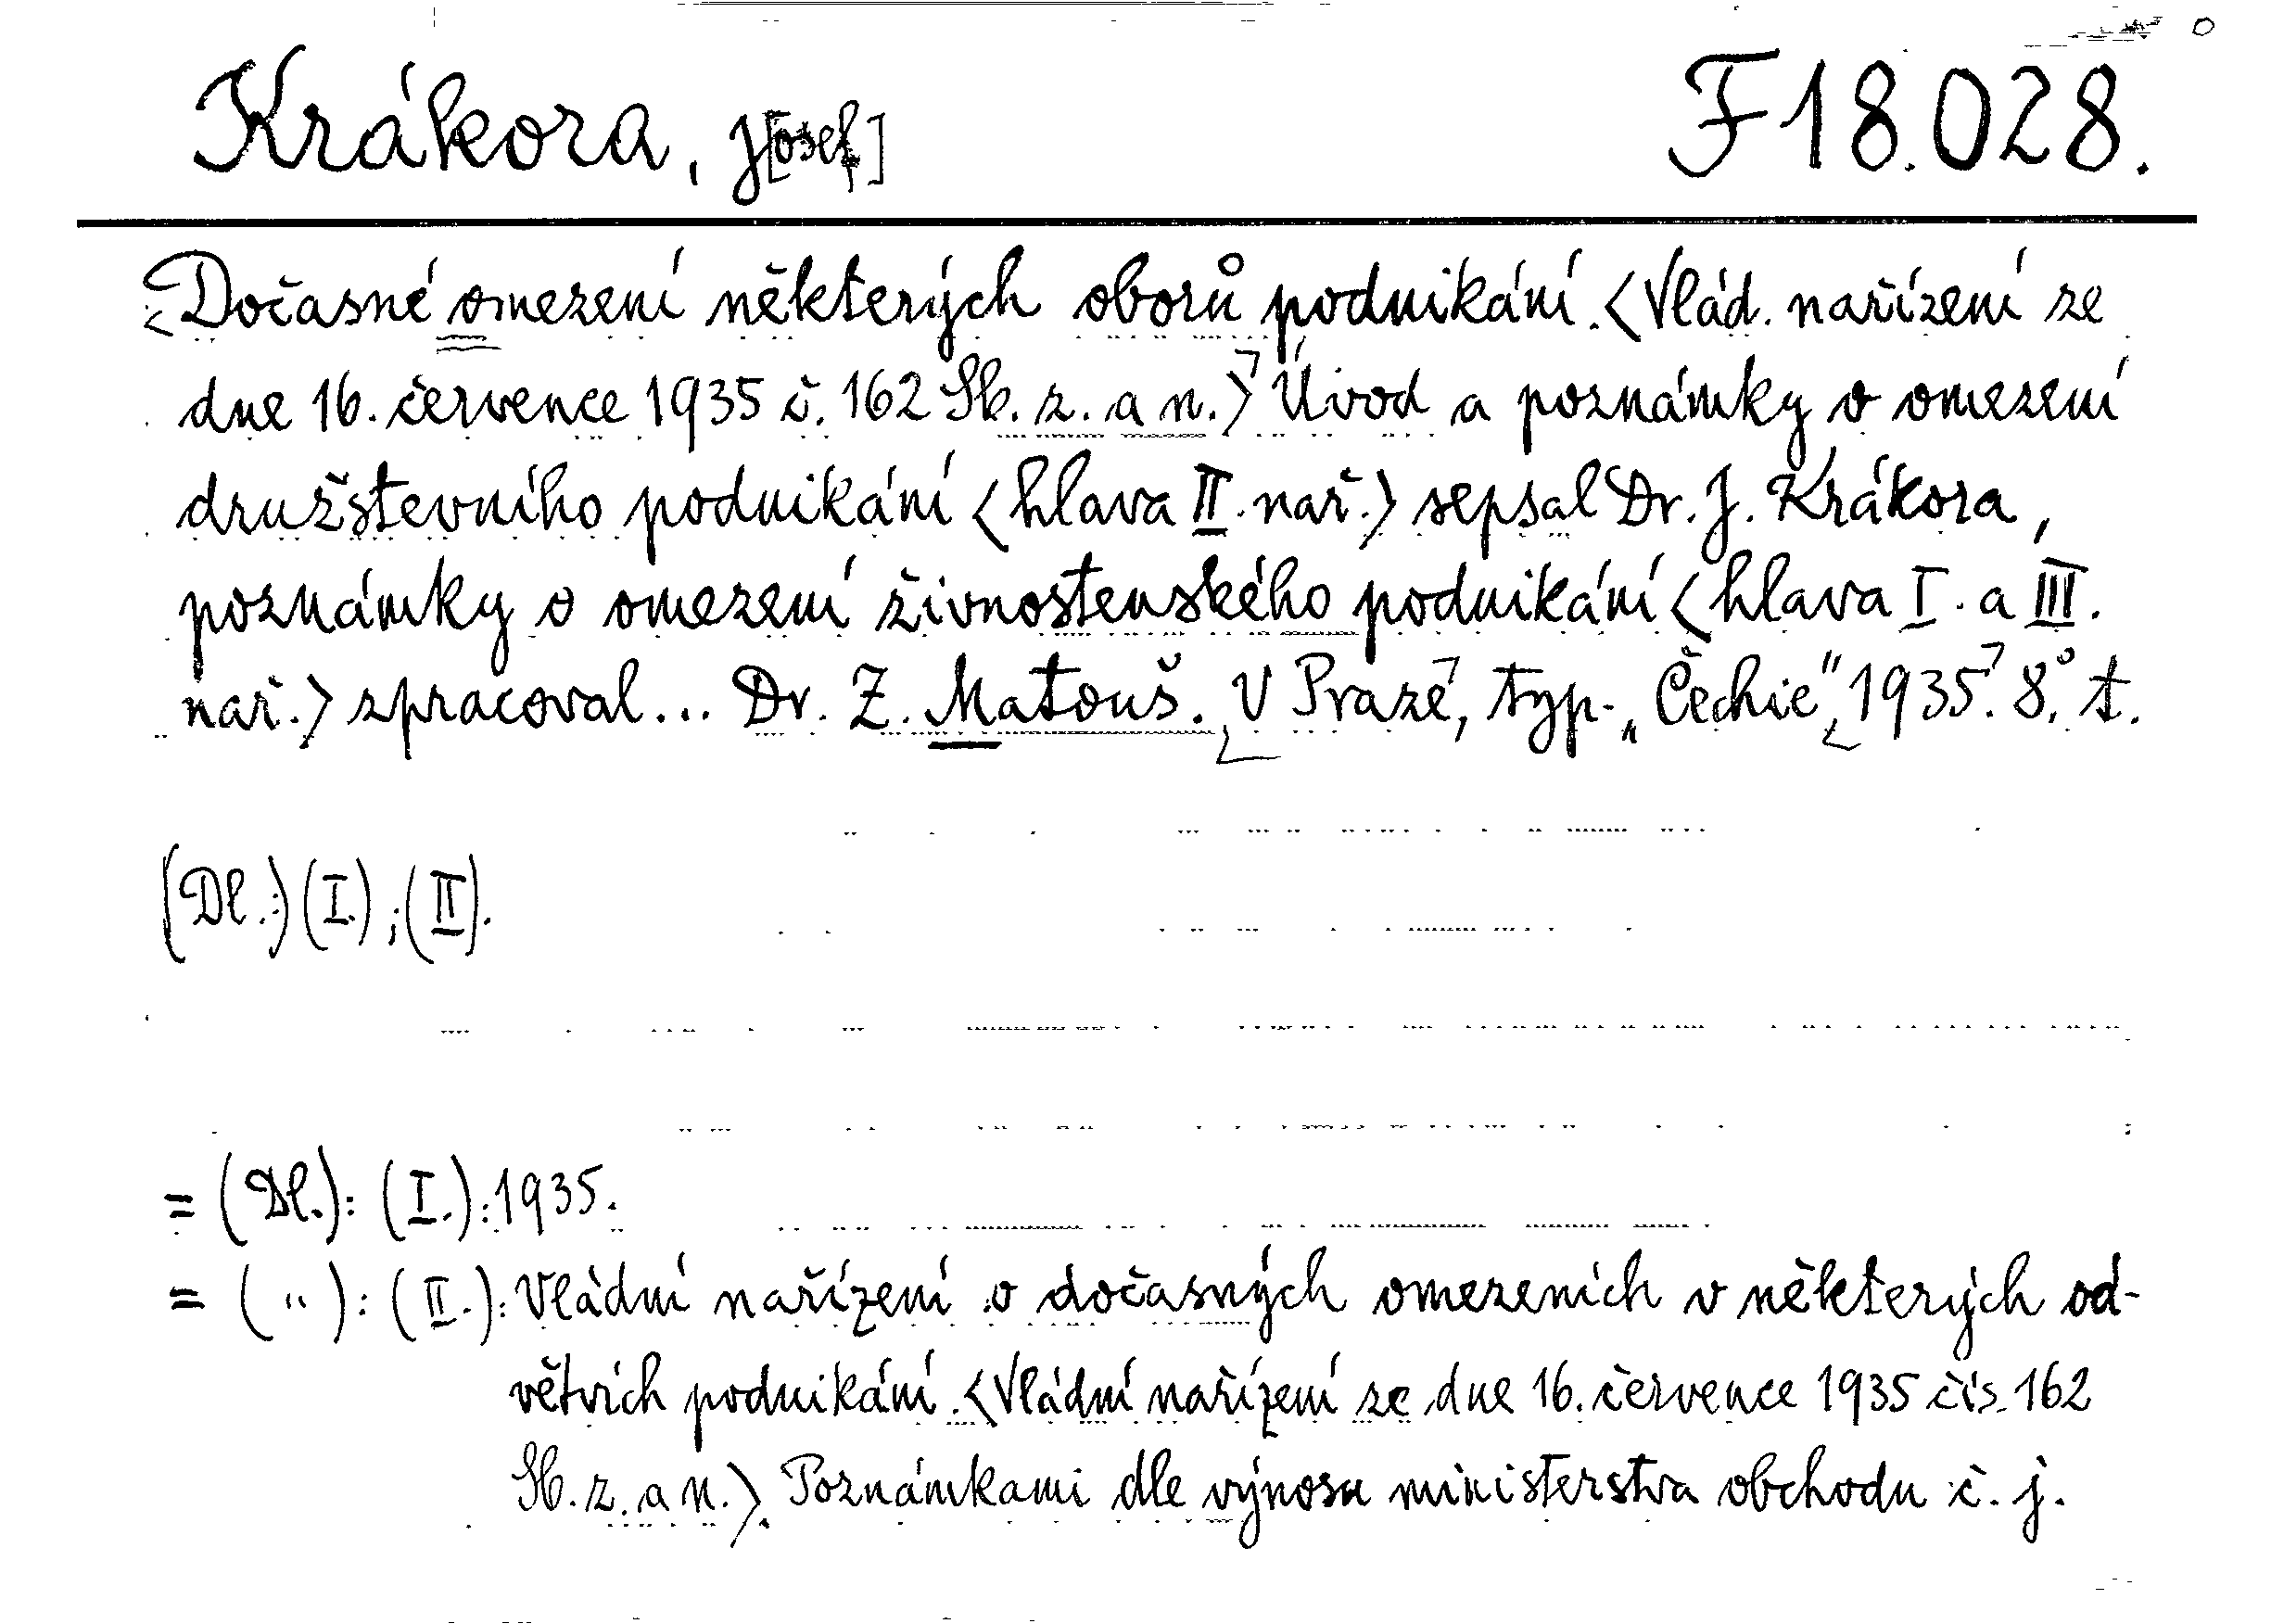 Krákora, J[osef] F 18.028.
Dočasné omezení některých oborů podnikání. <Vlád. nařízení ze
dne 16. července 1935 č. 162 Sb. z. a n.> Úvod a poznámky o omezení
družstevního podnikání <hlava II. nař.> sepsal Dr. J. Krákora,
poznámky o omezení živnostenského podnikání <hlava I. a III.
nař.> zpracoval... Dr. Z. Matouš. V Praze, typ. „Čechie“, 1935. 8.° t.
(Dl.:)(I.);(II).
= (Dl.): (I.): 1935.
= ( " ): (II.): Vládní nařízení o dočasných omezeních v některých od-
větvích podnikání. <Vládní nařízení ze dne 16. července 1935 čís. 162
Sb. z. a n.>. Poznámkami dle výnosu ministerstva obchodu č. j.